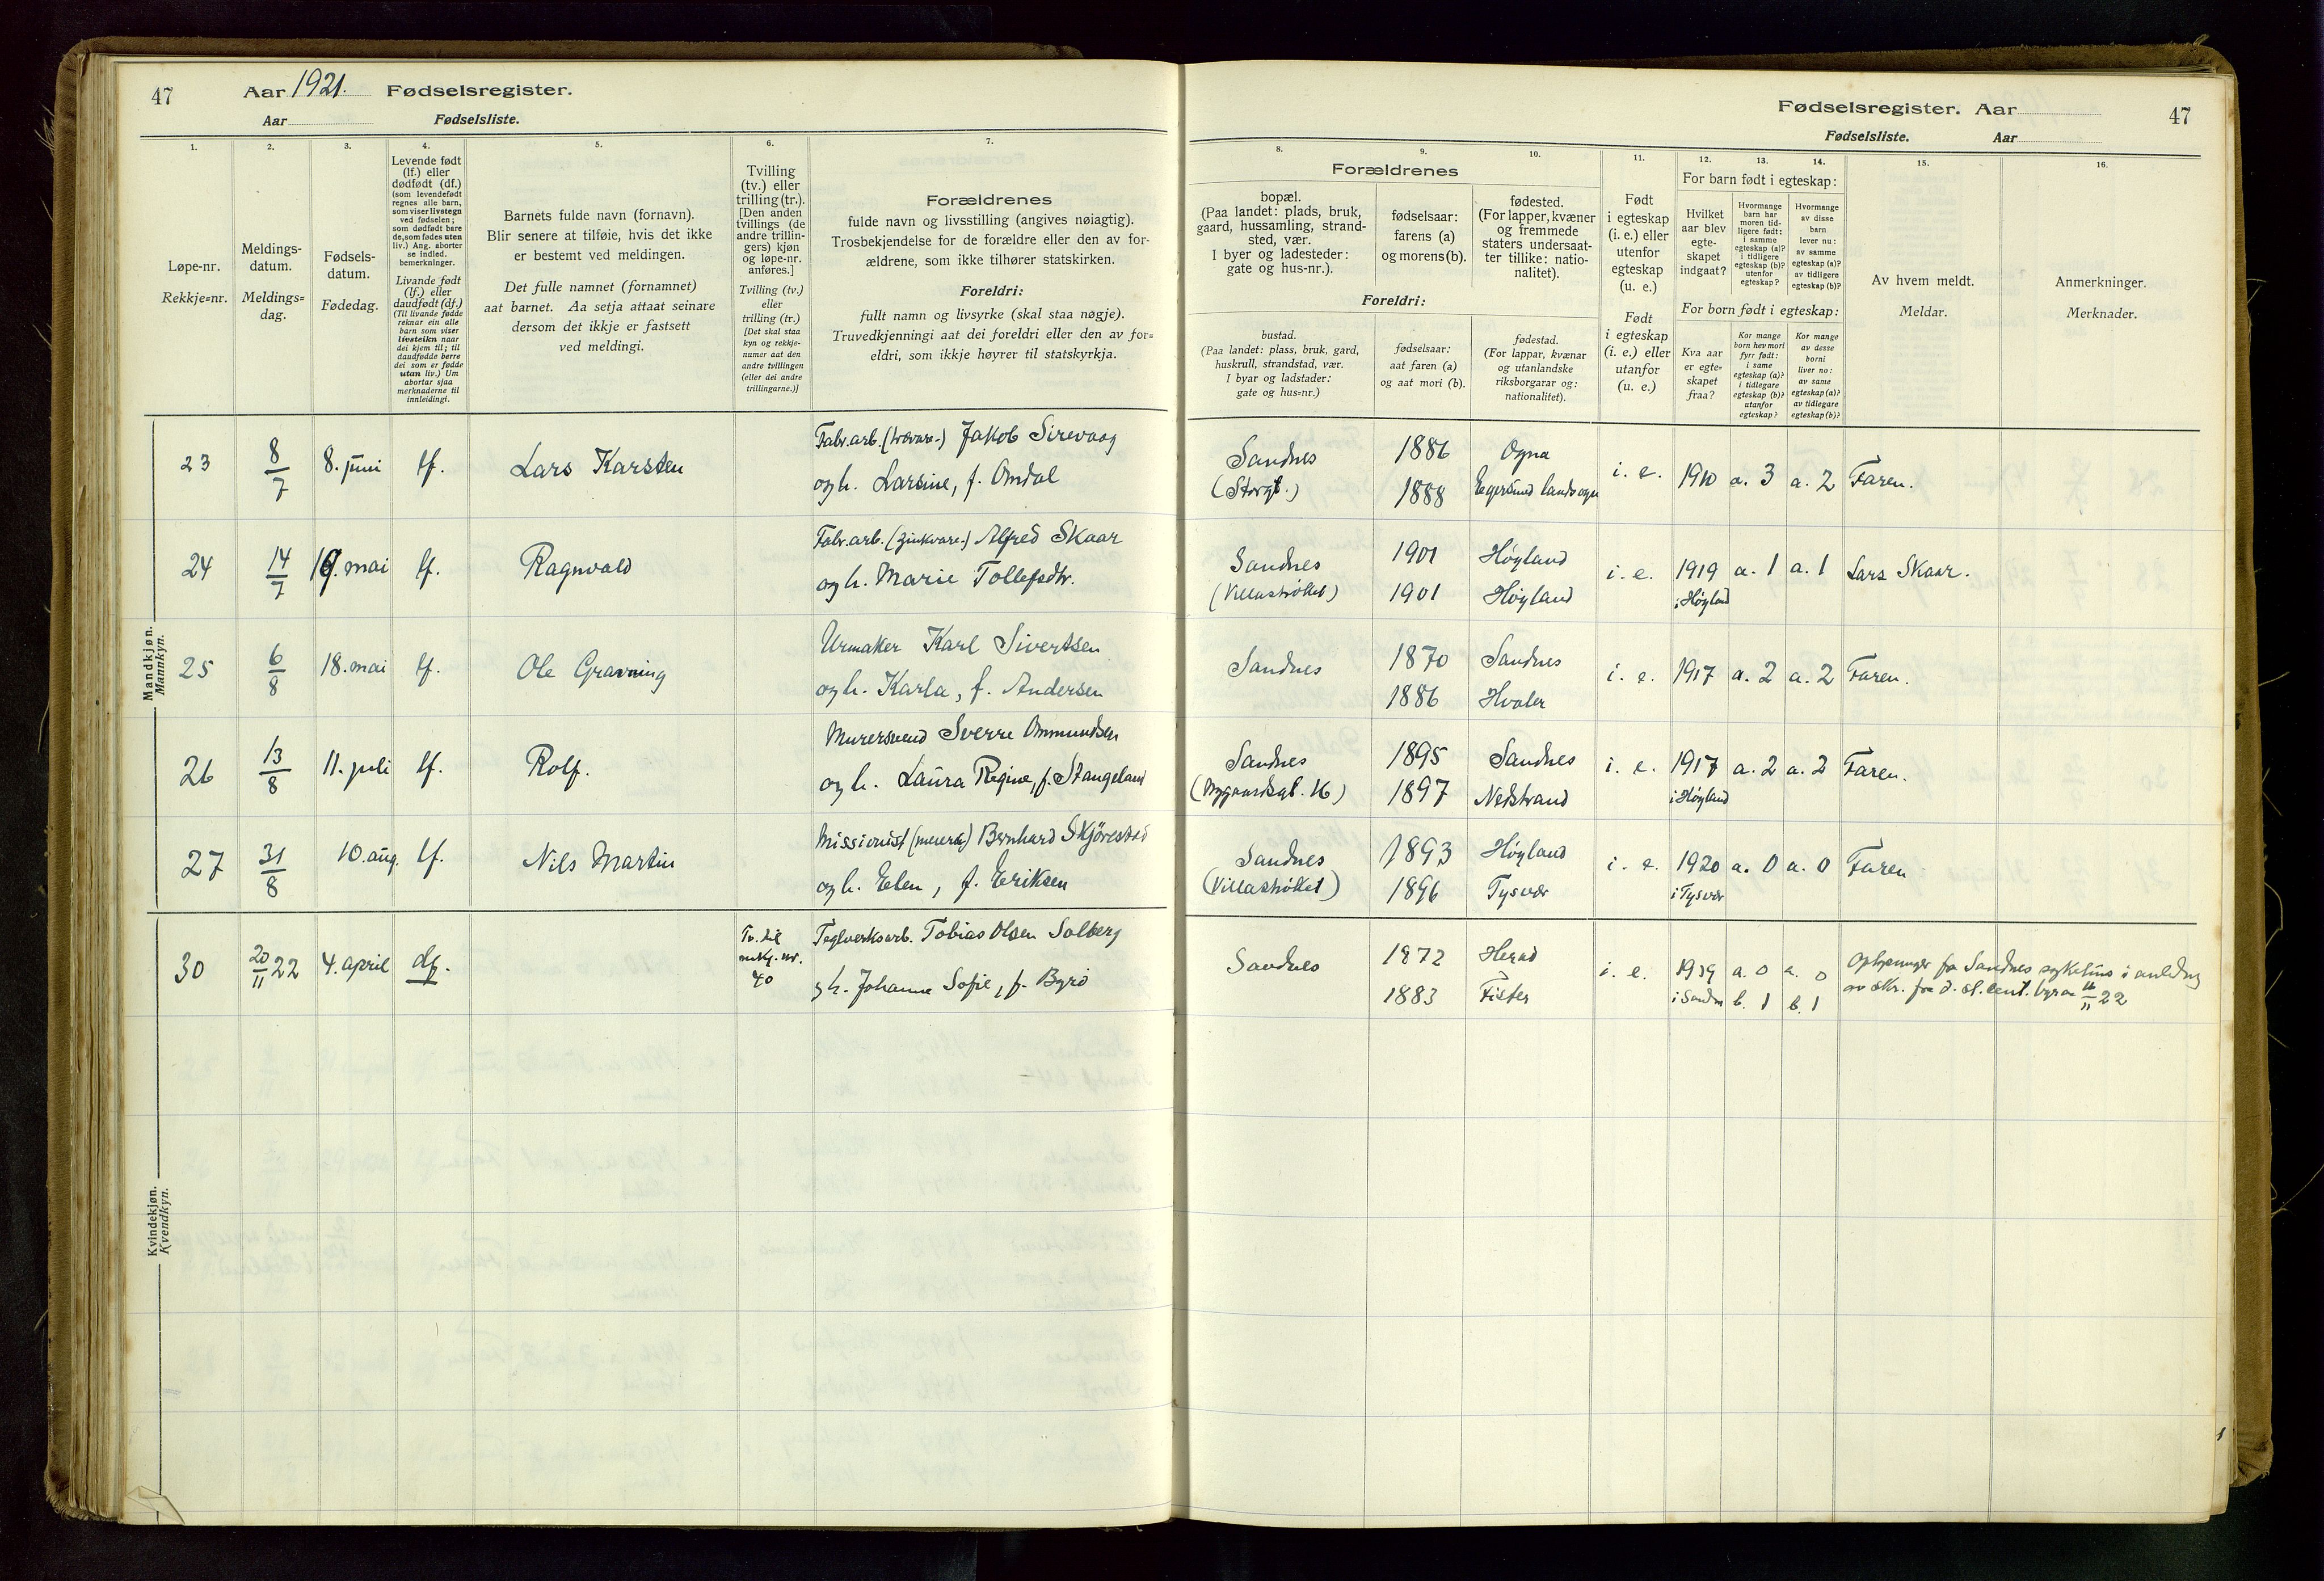 47
Aar 1921. Fødselsregister.
Aar Fødselsliste.
1.
2.
3.
4.
5.
6.
7.
Løpe-nr.
Rekkje=nr.
Meldings-
datum.
Meldings=
dag.
Fødsels-
datum.
Fødedag.
Levende født
(lf.) eller
dødfødt (df.)
(som levendefødt
regnes alle barn,
som viser livstegn
ved fødselen;
som dødfødt bare
de, som fødes uten
liv.) Ang. aborter
se indled.
bemerkninger.
Livande født
(lf.) eller
daudfødt (df.)
(Til livande fødde
reknar ein alle
barn som viser
livsteikn naar
dei kjem til; til
daudfødde berre
dei som er fødde
utan liv.) Um
abortar sjaa
merknaderne til
innleidingi.
Barnets fulde navn (fornavn).
Blir senere at tilføie, hvis det ikke
er bestemt ved meldingen.
Det fulle namnet (fornamnet)
aat barnet. Aa setja attaat seinare
dersom det ikkje er fastsett
ved meldingi.
Tvilling
(tv.) eller
trilling (tr.).
[Den anden
tvillings (de
andre trillin-
gers) kjøn
og løpe-nr.
anføres.]
Tvilling (tv.)
eller
trilling (tr.)
[Det skal staa
kyn og rekkje-
numer aat den
andre tvillingen
(eller dei andre
trillingarne.)]
Forældrenes
fulde navn og livsstilling (angives nøiagtig).
Trosbekjendelse for de forældre eller den av for-
ældrene, som ikke tilhører statskirken.
Foreldri:
fullt namn og livsyrke (skal staa nøgje).
Truvedkjenningi aat dei foreldri eller den av for=
eldri, som ikkje høyrer til statskyrkja.
Mandkjøn.
Mannkyn.
23 8/7 8. juni lf. Lars Karsten Fabr.arb. (trævare-) Jakob Sirevaag
og h. Larsine, f. Omdal
24 14/7 19. mai lf. Ragnvald Fabr.arb. (zinkvare-) Alfred Skaar
og h. Marie Tollefsdtr.
25 6/8 18. mai lf. Ole Gravning Urmaker Karl Sivertsen
og h. Karla, f. Andersen
26 13/8 11. juli lf. Rolf. Murersvend Sverre Ommundsen
og h. Laura Regine, f. Stangeland
27 31/8 10. aug. lf. Nils Martin Missionist Bernhard Skjørestad
og h. Elen, f. Eriksen
Kvindekjøn.
Kvendkyn.
30 20/11 22 4. april df. Tv. til
nr.
40 Teglverksarb. Tobias Olsen Solberg
og h. Johanne Sofie, f. Byrø
Fødselsregister. Aar 47
Fødselsliste. Aar
8.
9.
10.
11.
12.
13.
14.
15.
16.
Forældrenes
bopæl.
(Paa landet: plads, bruk,
gaard, hussamling, strand-
sted, vær.
I byer og ladesteder:
gate og hus-nr.).
fødselsaar:
farens (a)
og morens (b).
fødested.
(For lapper, kvæner
og fremmede
staters undersaat-
ter tillike: natio-
nalitet).
Foreldri:
bustad.
(Paa landet: plass, bruk, gard,
huskrull, strandstad, vær.
I byar og ladstader:
gate og hus=nr.)
fødselsaar:
aat faren (a)
og aat mori (b).
fødestad.
(For lappar, kvænar
og utanlandske
riksborgarar og:
nationalitet).
Født
i egteskap
(i. e.) eller
utenfor
egteskap
(u. e.)
Født
i egteskap
(i. e.) eller
utanfor
(u. e.)
For barn født i egteskap:
Hvilket
aar blev
egte-
skapet
indgaat?
Hvormange
barn har
moren tid-
ligere født:
i samme
egteskap (a)?
i tidligere
egteskap (b)?
utenfor
egteskap?
Hvormange
av disse
barn
lever nu:
av samme
egteskap (a)?
av tidligere
egteskap (b)?
For born født i egteskap:
Kva aar
er egte=
skapet
fraa?
Kor mange
born hev mori
fyrr født:
i same
egteskap (a)?
i tidlegare
egteskap (b)?
utanfor
egteskap?
Kor mange
av desse
borni
liver no:
av same
egteskap (a)?
av tidlegare
egteskap (b)?
Av hvem meldt.
Meldar.
Anmerkninger.
Merknader.
Sandnes
(Storgt.) 1886
1888 Ogna
Egersund landsogn i. e. 1910 a. 3 a. 2 Faren.
Sandnes
(Villastrøket) 1901
1901 Høyland
Høyland i. e. 1919
i Høyland a. 1 a. 1 Lars Skaar.
Sandnes 1870
1886 Sandnes
Hvaler i. e. 1917 a. 2 a. 2 Faren.
Sandnes
16) 1895
1897 Sandnes
Nedstrand i. e. 1917
i Høyland a. 2 a. 2 Faren.
Sandnes
(Villastrøket) 1893
1896 Høyland
Tysvær i. e. 1920
i Tysvær a. 0 a. 0 Faren
Sandnes 1872
1883 Herad
Fister i. e. 1919
i Sandn a. 0 a. 0
b. 1 b. 1 Oplysninger fra Sandnes sykehus i anledning
av skr. fra d. st. cent. byraa 22